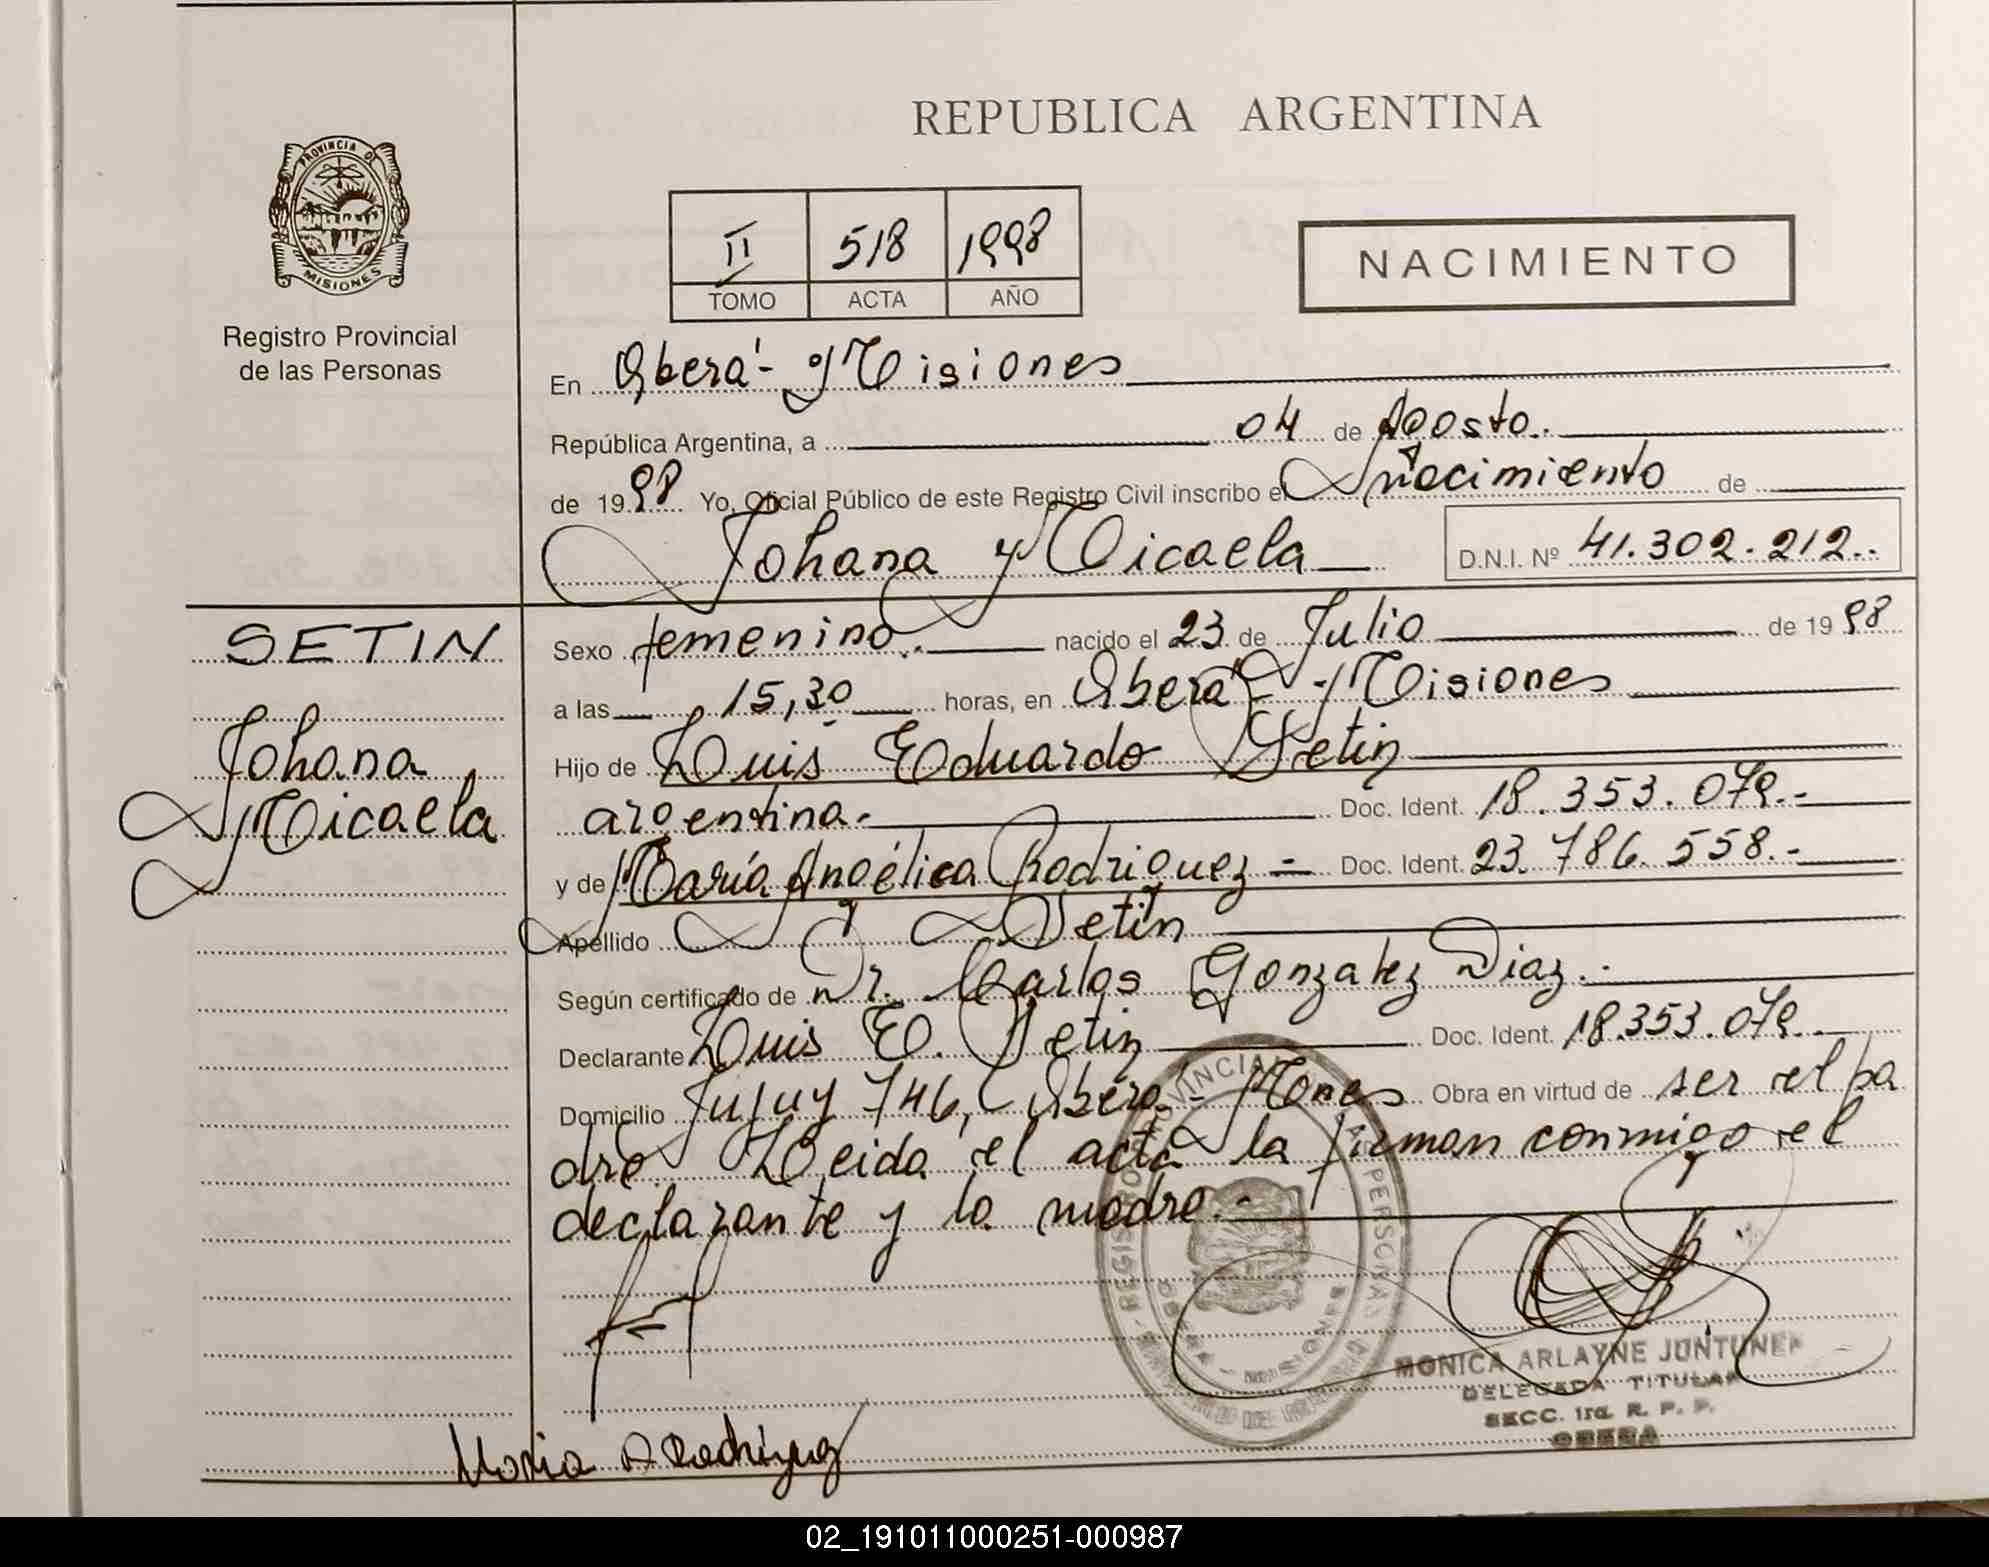 REPUBLICA ARGENTINA
PROVINCIA DE
MISIONES
Registro Provincial
de las Personas
II 518 1998
TOMO ACTA AÑO
NACIMIENTO
En Oberá - Misiones
República Argentina, a 04 de Agosto.
de 1998 Yo, Oficial Público de este Registro Civil inscribo el nacimiento de
Johana Micaela D.N.I. Nº 41.302.212..
SETIN
Johana
Micaela
Sexo femenino. nacido el 23 de Julio de 1998
a las 15,30 horas, en Oberá - Misiones
Hijo de Luis Eduardo Setin
argentina.- Doc. Ident. 18.353.079.-
y de María Angélica Rodriguez - Doc. Ident. 23.786.558.-
Apellido Setin
Según certificado de n Dr. Carlos Gonzalez Diaz.-
Declarante Luis E. Setin Doc. Ident. 18.353.079.-
Domicilio Jujuy 746, Oberá - Mones Obra en virtud de ser el pa
dre. Leida el acta la firman conmigo el
declarante y la madre.-
MONICA ARLAYNE JUNTUNEN
DELEGADA TITULAR
SECC. 1ra. R. P. P.
OBERA
Maria A Rodriguez
02_191011000251-000987